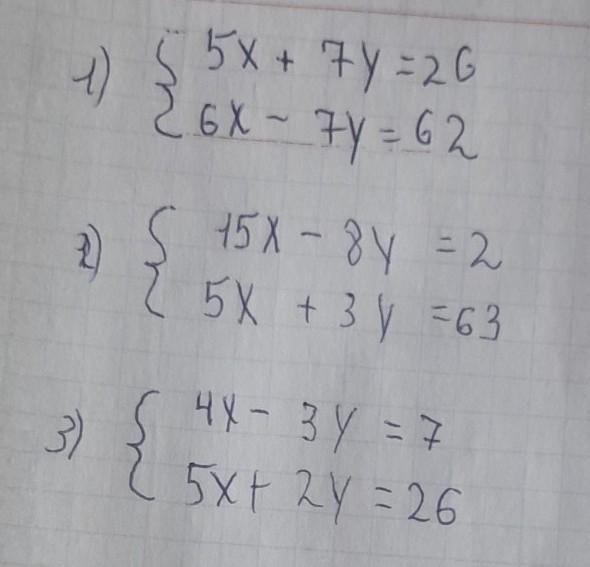 1) { 5x + 7y = 26
6x - 7y = 62
2) { 15x - 8y = 2
5x + 3y = 63
3) { 4x - 3y = 7
5x + 2y = 26